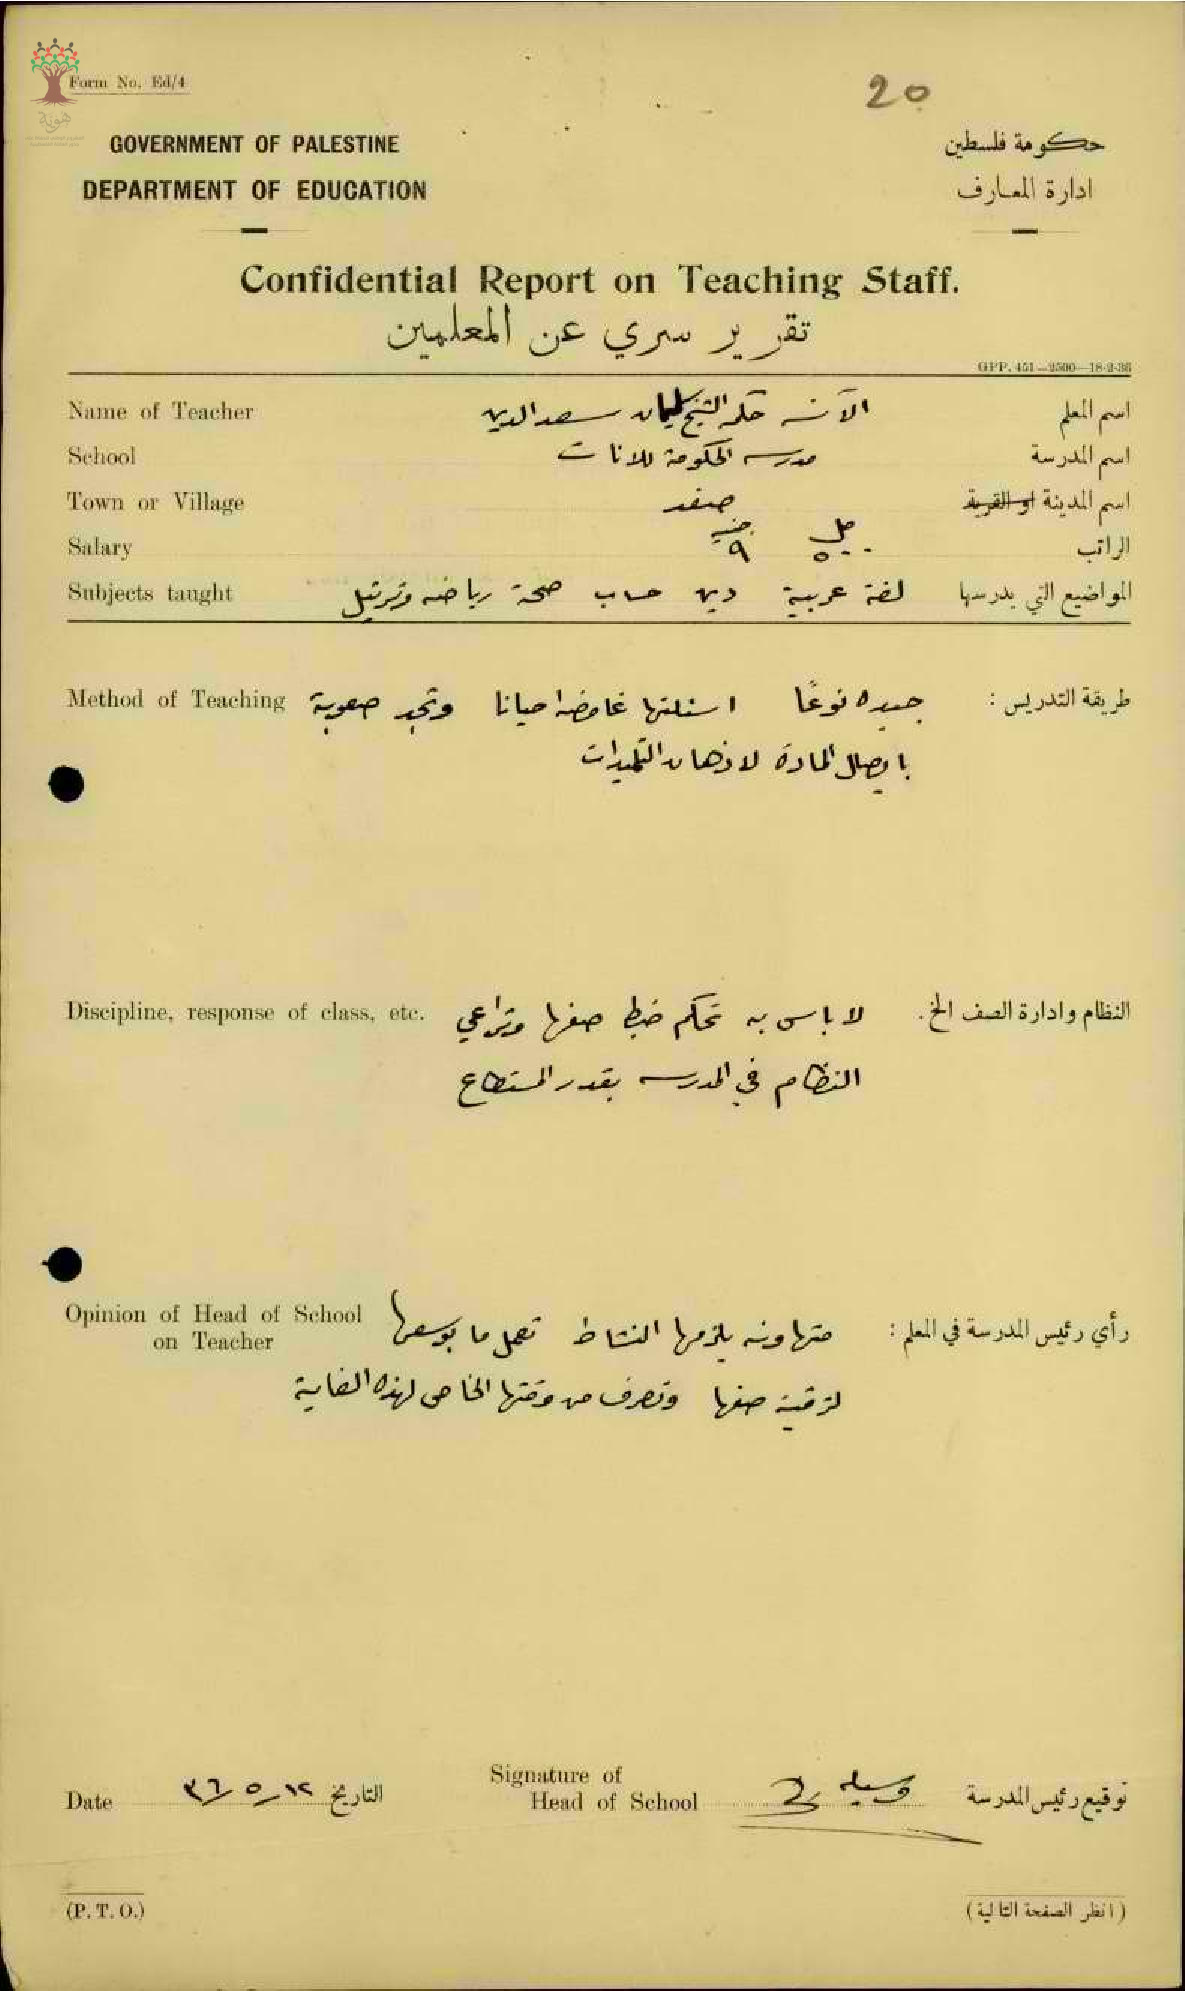 Form No. Ed/4
20
هوية
GOVERNMENT OF PALESTINE
حكومة فلسطين
DEPARTMENT OF EDUCATION
ادارة المعارف
Confidential Report on Teaching Staff.
تقرير سري عن المعلمين
GPP. 451—2500—18-2-36
Name of Teacher الآنسه حكمه الشيخ سليمان سعد الدين اسم المعلم
School مدرسه الحكومة للاناث اسم المدرسة
Town or Village صفد اسم المدينة او القرية
Salary جنيه ٩ مل ٥٠٠ الراتب
Subjects taught لغة عربية دين حساب صحة رياضه وترتيل المواضيع التي يدرسها
Method of Teaching جيده نوعًا اسئلتها غامضه احيانا وتجد صعوبة طريقة التدريس :
بايصال المادة لاذهان التلميذات
Discipline, response of class, etc. لا باس به تحكم ضبط صفها وتراعي النظام وادارة الصف الخ.
النظام في المدرسه بقدر المستطاع
Opinion of Head of School on Teacher متهاونه يلزمها النشاط تعمل ما بوسعها رأي رئيس المدرسة في المعلم :
لترقية صفها وتصرف من وقتها الخاص لهذه الغاية
Date ٣٦/٥/١٢ التاريخ Signature of Head of School وسيله توقيع رئيس المدرسة
(P. T. O.) (انظر الصفحة التالية)